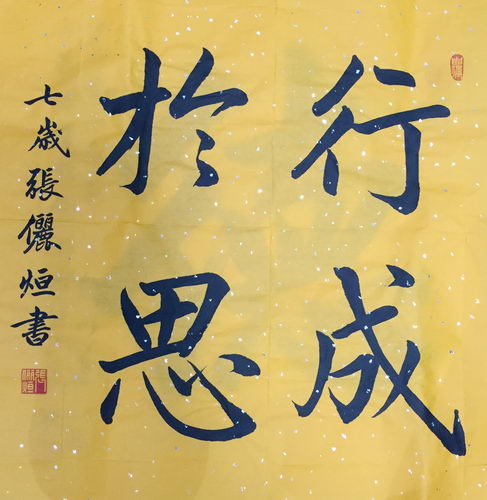 行成
於思
七歲張儷烜書